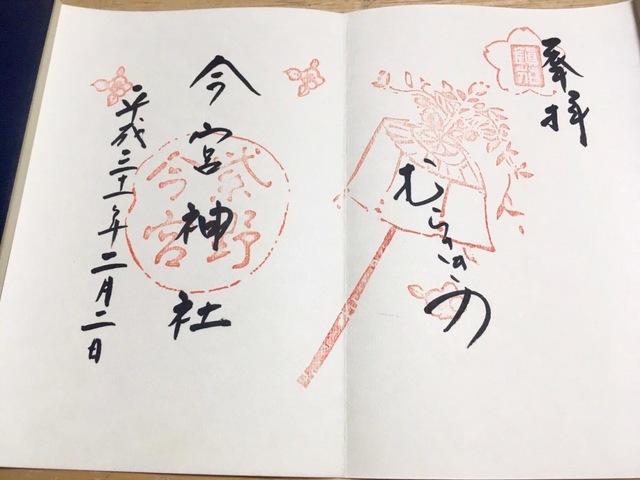 奉拝
鎮花
むらさきの
今宮神社
紫野
今宮
平成三十一年二月二日